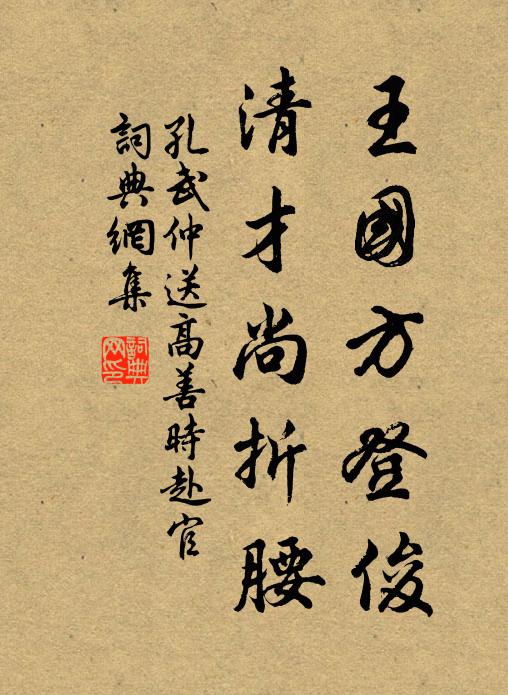 王國方登俊
清才尚折腰
孔武仲送高善時赴官
詞典網集
詞典網印